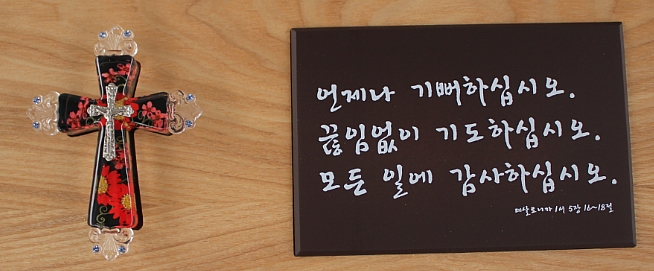 언제나 기뻐하십시오.
끊임없이 기도하십시오.
모든 일에 감사하십시오.
테살로니카 1서 5장 16~18절